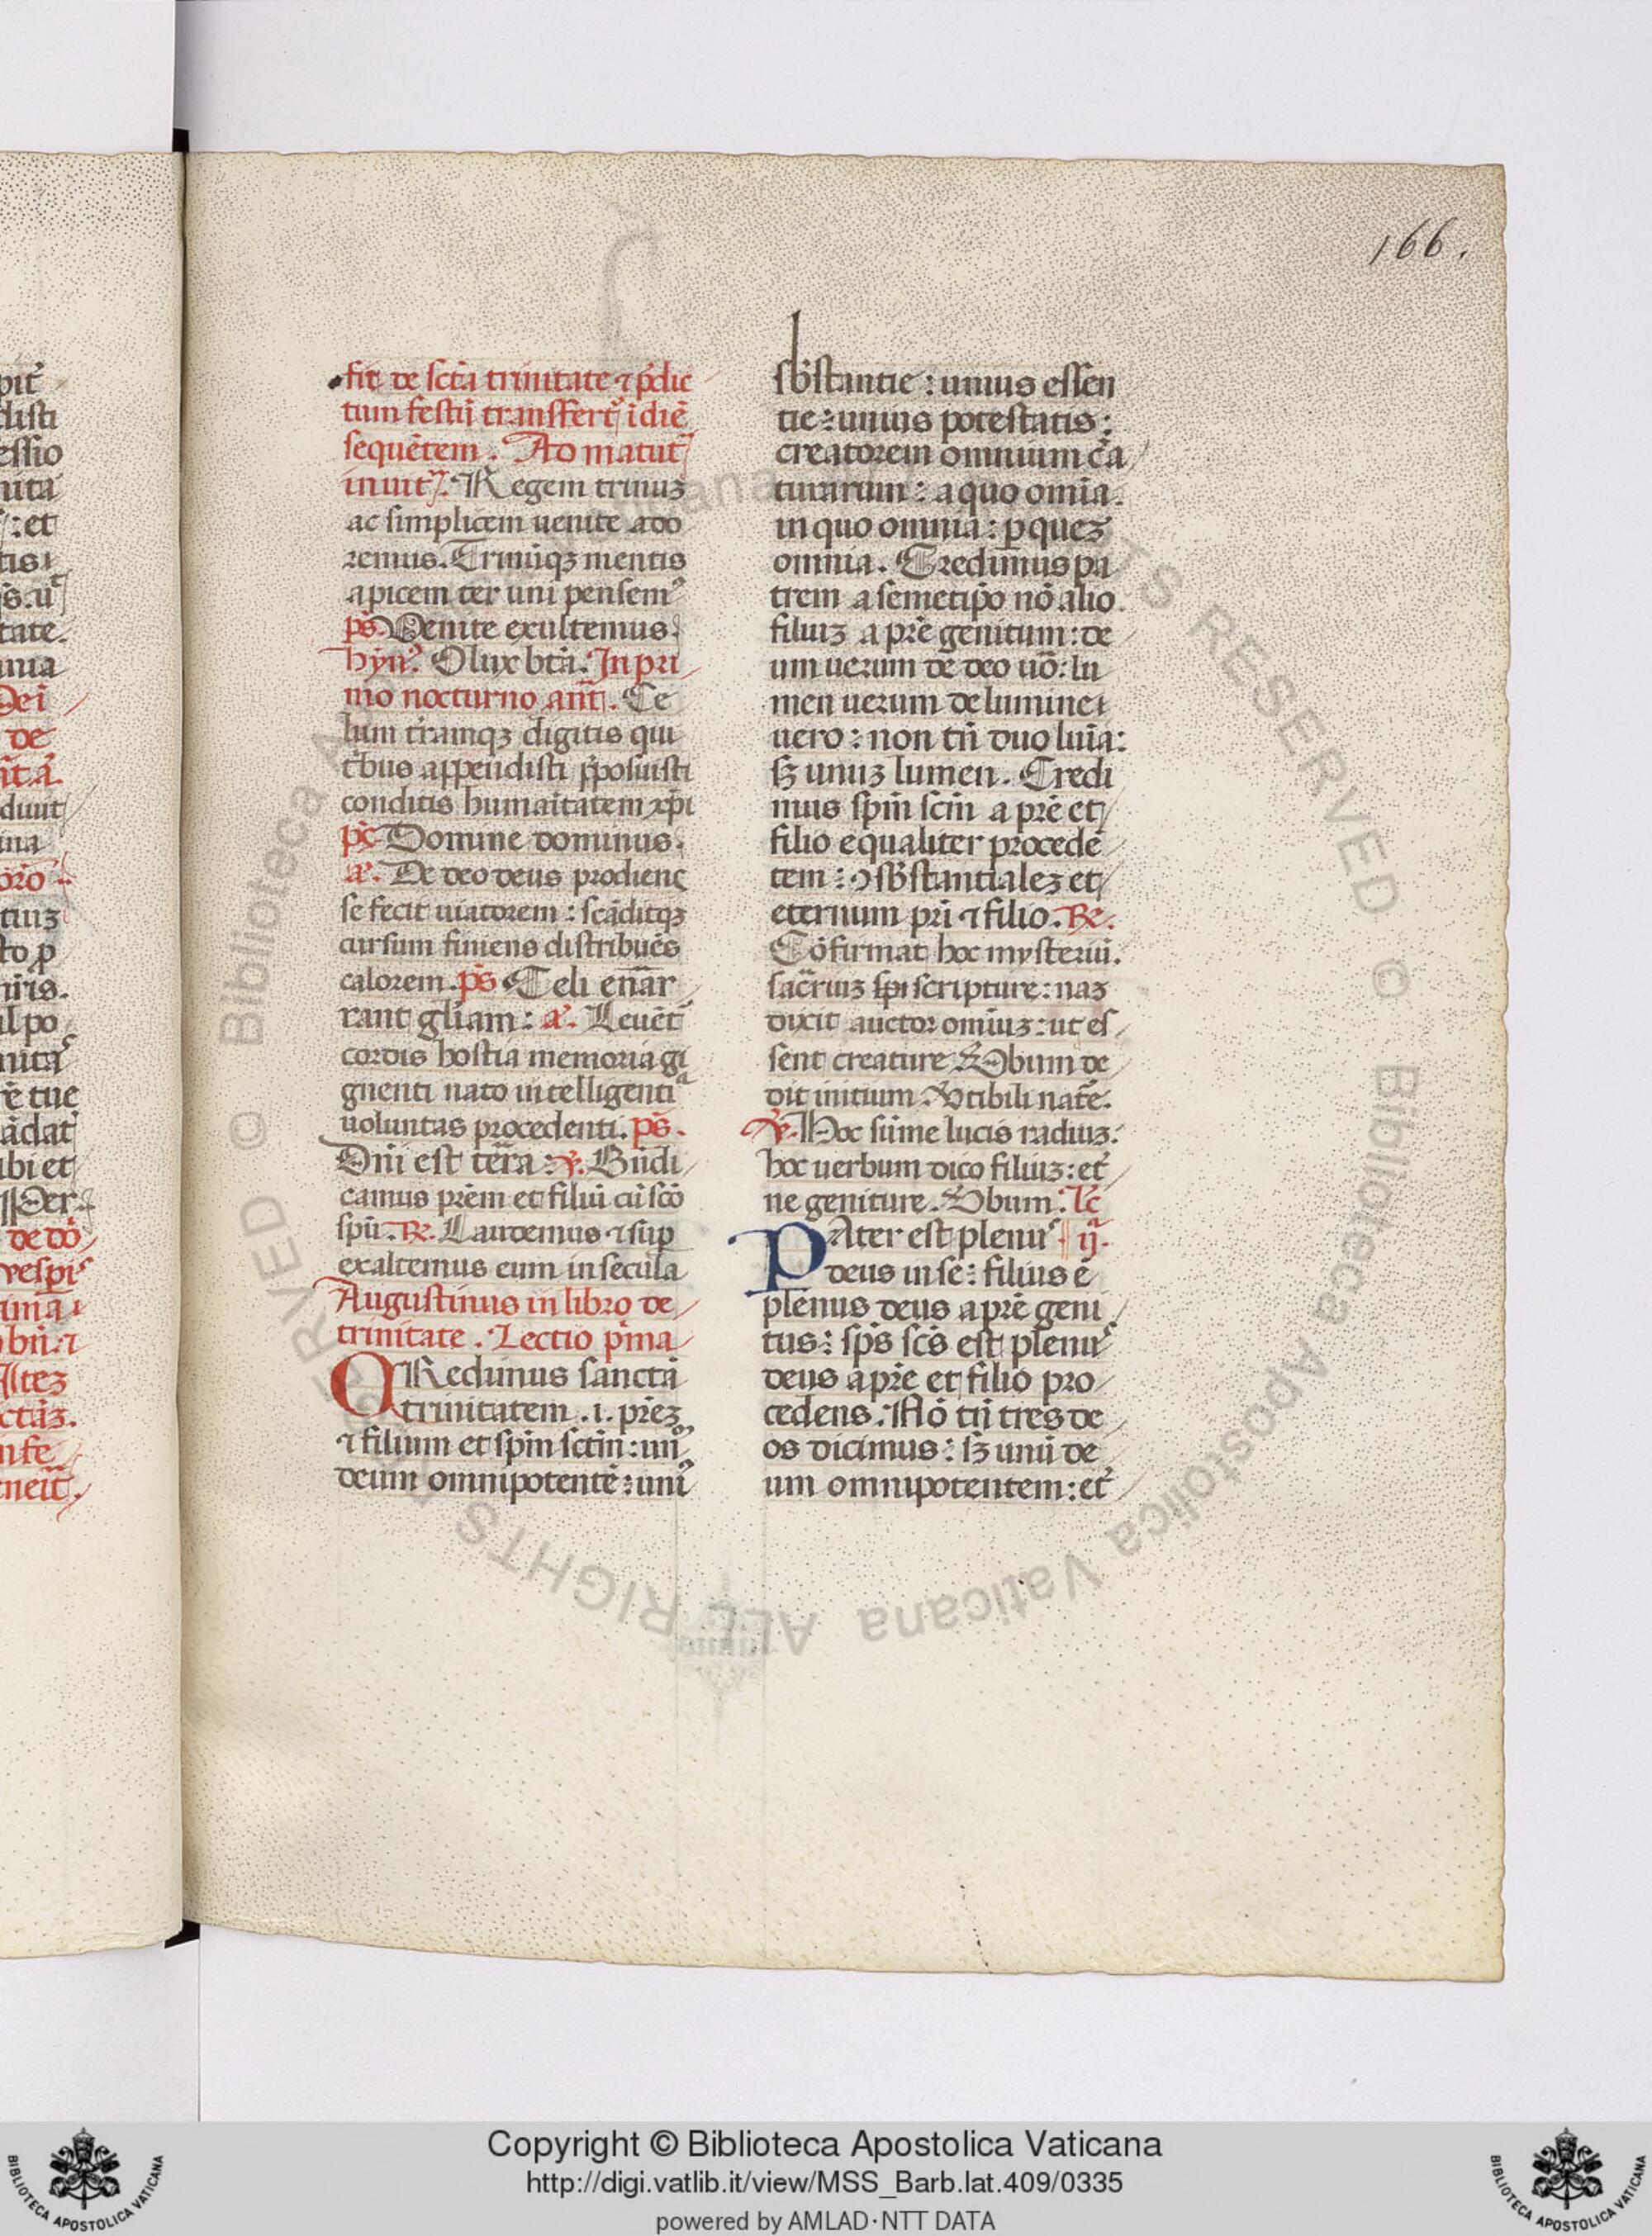 166.
fit de scta trinitate ⁊ pdic
tum festū transfert᷑ ī diē
sequētem. Ad matut
inuit. Regem trinuꝫ
ac simplicem uenite ado
remus. Trinūqꝫ mentis
apicem ter uni pensemꝰ
ps̄. Uenite exultemus.
hyn̄. O lux btā. In pri
mo nocturno ant̄. Ce
lum terāmqꝫ digitis qui
tbus appendisti pposuisti
conditis humaītatem xp̄i
ps̄ Domine dominus.
a᷑. De deo deus prodiens
se fecit uiatorem : scāditqꝫ
cursum finiens distribuēs
calorem. ps̄ Celi enar
rant gl̄iam : a᷑. Leuet
cordis hostia memoria gi
gnenti nato intelligentia
uoluntas procedenti. ps̄.
Dn̄i est tēra : ℣. Bn̄di
camus prēm et filiū cū scō
spū. ℟. Laudemus ⁊ sup
exaltemus eum in secula
Augustinus in libro de
trinitate. Lectio pma
CRedimus sanctā
trinitatem .i. prēꝫ
⁊ filium et spm̄ sctm̄ : unū
deum omnipotentē : uniꝰ
sbstantie : unius essen
tie : unius potestatis :
creatorem omnium cea
turarum : a quo omīa.
in quo omnia : p̱ queꝫ
omnia. Credimus pa
trem a semetip̄o nō alio
filiuꝫ a prē genitum : de
um uerum de deo uō : lu
men uerum de lumine
uero : non tn̄ duo luīa :
sꝫ unuꝫ lumen. Credi
mus spm̄ scm̄ a prē et
filio equaliter procedē
tem : ꝯsbstantialeꝫ et
eternum pri ⁊ filio. ℟.
Cōfirmat hoc mysteriū.
sacruꝫ spi scripture : naꝫ
dixit auctor omiuꝫ : ut es
sent creature Uerbum de
dit initium. Uisibili nate.
℣. Hoc sūme lucis radiuꝫ :
hoc uerbum dico filiuꝫ : et
ne geniture. Uerbum : Lc̄
PAter est plenuˢ ij.
deus in se : filius ē
plenus deus a prē geni
tus : sps̄ scs̄ est plenuˢ
deus a prē et filio pro
cedens. Nō tn̄ tres de
os dicimus : sꝫ unū de
um omnipotentem : et
Copyright © Biblioteca Apostolica Vaticana
http://digi.vatlib.it/view/MSS_Barb.lat.409/0335
powered by AMLAD·NTT DATA